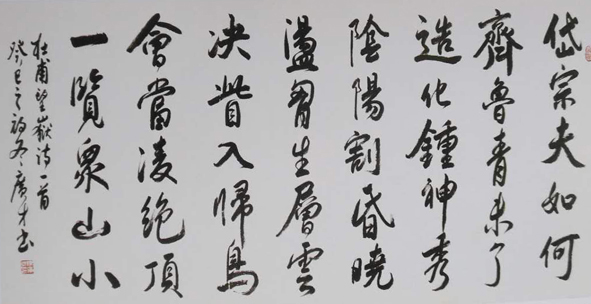 岱宗夫如何
齊魯青未了
造化鍾神秀
陰陽割昏曉
盪胷生層雲
決眥入歸鳥
會當凌絶頂
一覽衆山小
杜甫望嶽诗一首
癸巳之初冬廣才书